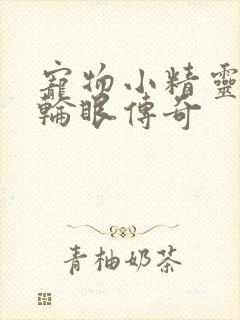 寵物小精靈
輪眼傳奇
青柚奶茶